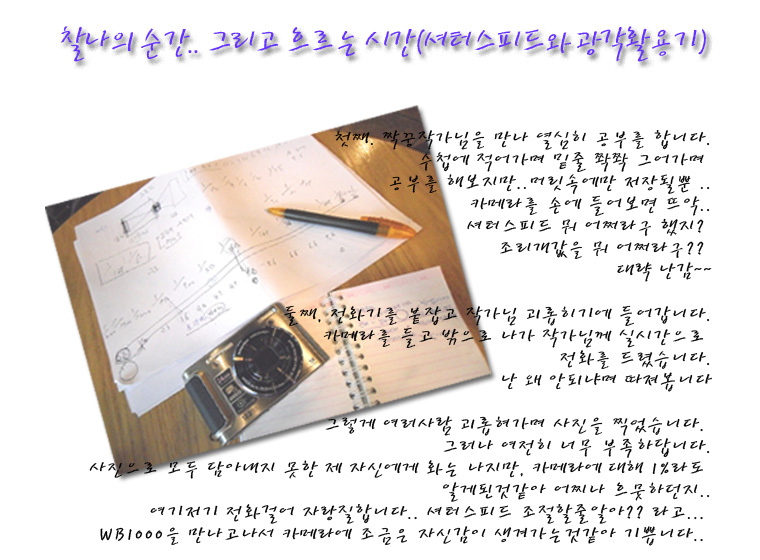 찰나의 순간.. 그리고 흐르는 시간(셔터스피드와 광각활용기)
첫째. 짝꿍작가님을 만나 열심히 공부를 합니다.
수첩에 적어가며 밑줄 쫙쫙 그어가며
공부를 해보지만..머릿속에만 저장될뿐 ..
카메라를 손에 들어보면 뜨악..
셔터스피드 뭐 어쩌라구 했지?
조리개값을 뭐 어쩌라구??
대략 난감~~
둘째, 전화기를 붙잡고 작가님 괴롭히기에 들어갑니다.
카메라를 들고 밖으로 나가 작가님께 실시간으로
전화를 드렸습니다.
난 왜 안되냐며 따져봅니다
그렇게 여러사람 괴롭혀가며 사진을 찍었습니다.
그러나 여전히 너무 부족하답니다.
사진으로 모두 담아내지 못한 제 자신에게 화는 나지만, 카메라에 대해 1%라도
알게된것같아 어찌나 흐뭇하던지..
여기저기 전화걸어 자랑질합니다.. 셔터스피드 조절할줄알아?? 라고...
WB1000을 만나고나서 카메라에 조금은 자신감이 생겨가는것같아 기쁩니다..